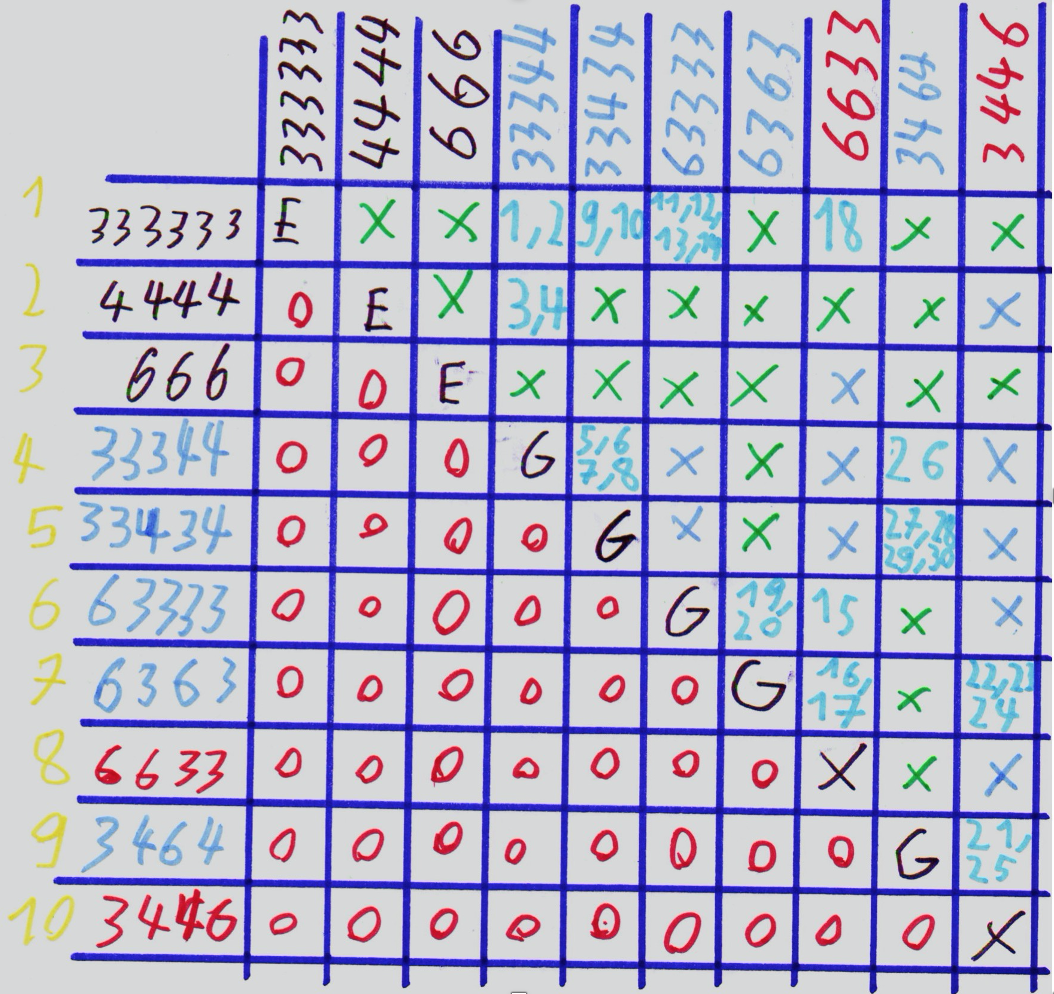 333333 4444 666 33344 33434 63333 6363 6633 3464 3446
1 333333 E X X 1,2 9,10 11,12, 13,14 X 18 X X
2 4444 0 E X 3,4 X X X X X X
3 666 0 0 E X X X X X X X
4 33344 0 0 0 G 5,6 7,8 X X X 26 X
5 33434 0 0 0 0 G X X X 27,28 29,30 X
6 63333 0 0 0 0 0 G 19, 20 15 X X
7 6363 0 0 0 0 0 0 G 16, 17 X 22,23 24
8 6633 0 0 0 0 0 0 0 X X X
9 3464 0 0 0 0 0 0 0 0 G 21, 25
10 3446 0 0 0 0 0 0 0 0 0 X